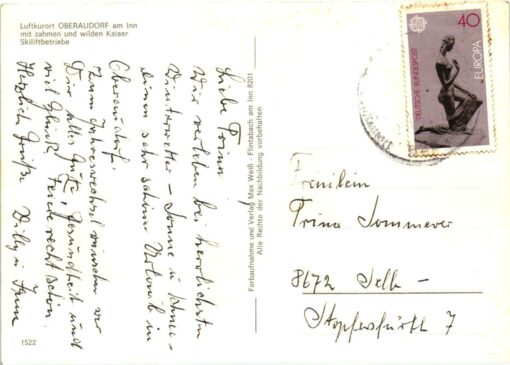 Luftkurort OBERAUDORF am Inn
mit zahmen und wilden Kaiser
Skiliftbetriebe
Liebe Prina
Wir verleben bei herrlichstem
Winterwetter – Sonne u. Schnee –
einen sehr schönen Urlaub in
Oberaudorf.
Zum Jahreswechsel wünschen wir
Dir alles Gute, Gesundheit und
viel Glück. Feiere recht schön.
Herzlich Grüße Willy u.
Farbaufnahme und Verlag Max Weiß, Flintsbach am Inn 8201
Alle Rechte der Nachbildung vorbehalten
40
DEUTSCHE BUNDESPOST
EUROPA
Fräulein
Prina Sommerer
8672 Selb –
Stopfersfurth 7
1522